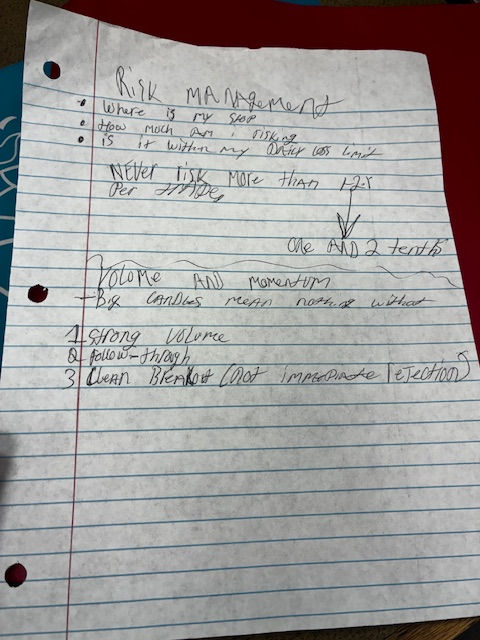 Risk MANAgement
• Where is my stop
• How much am i risking
• is it within my DAily loss limit
NEVer risk more than
Per trade,
one AND 2 tenths
Volume AND momentum
- Big CANDles mean nothing without
1 strong volume
2 follow-through
3 Clean Breakout (not immediate rejection)